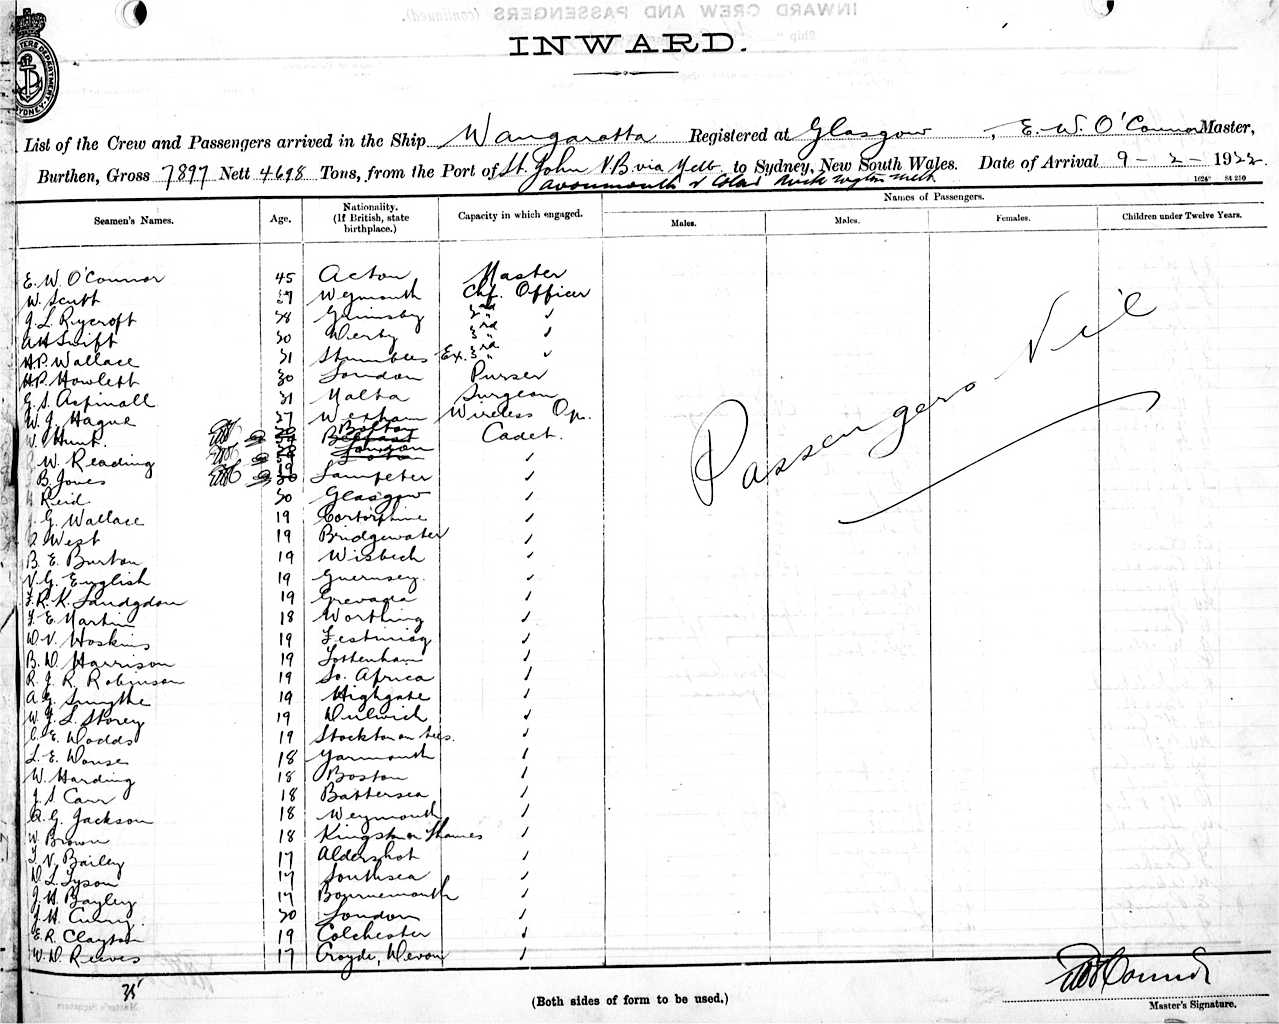 INWARD CREW AND PASSENGERS (continued).
INWARD.
List of the Crew and Passengers arrived in the Ship Wangaratta Registered at Glasgow, E. W. O'Connor Master,
Burthen, Gross 7897 Nett 4698 Tons, from the Port of St. John N B via Melb to Sydney, New South Wales. Date of Arrival 9 - 2 - 1922
Avonmouth & Colon
Seamen's Names. Age. Nationality. (If British, state birthplace.) Capacity in which engaged. Names of Passengers.
Males. Males. Females. Children under Twelve Years.
E. W. O'Connor 45 Acton Master
W. Scutt Weymouth Chf. Officer
J. L. Rycroft 38 Grimsby 2nd " ✓
A H Swift 30 Derby 3rd " ✓
H. P. Wallace 31 Ex. 3rd " ✓
H. P. Howlett 30 London Purser
G. S. Aspinall 31 Malta Surgeon
W. J. Hague 27 Wexham Wireless Op.
Hunt Bolton Belfast Cadet.
W. Reading London ✓
B. Jones 19 Lampeter ✓
Reid 20 Glasgow ✓
G. Wallace 19 Corstorphine ✓
West 19 Bridgewater ✓
B. E. Burton 19 Wisbech ✓
V. G. English 19 Guernsey ✓
F. R. K. Landgdon 19 Grenada ✓
F. E. Martin 18 Worthing ✓
W. V. Hoskins 19 Festiniog ✓
B. D. Harrison 19 Tottenham ✓
R. J. R. Robinson 19 So. Africa ✓
A. G. Smythe 19 Highgate ✓
W. J. L. Storey 19 Dulwich ✓
C. E. Wodds 19 Stockton on Tees. ✓
L. E. Wouse 18 Yarmouth ✓
W. Harding 18 Boston ✓
J. S. Carr 18 Battersea ✓
A. G. Jackson 18 Weymouth ✓
W. Brown 18 Kingston Thames ✓
L. V. Bailey 17 Aldershot ✓
D. L. Tyson 17 Southsea ✓
J. H. Bayley 17 Bournemouth ✓
J. H. Curry 20 London ✓
E. R. Clayton 19 Colchester ✓
W. D. Reeves 17 Croyde, Devon ✓
Passengers Nil
35
(Both sides of form to be used.)
EWO'Connor
Master's Signature.